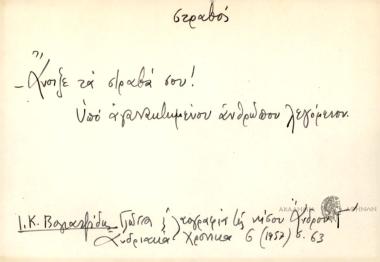 στραβός
– Άνοιξε τά στραβά σου!
Ὑπό ἀγανακτημένου ἀνθρώπου λεγόμενον.
Ι. Κ. Βογιατζίδη, Γλῶσσα & λαογραφία τῆς νήσου Ἄνδρου, Γ
Ἀνδριακά Χρονικά 6 (1957) σ. 63
ΑΚΑΔΗΜΙΑ ΑΘΗΝΩΝ